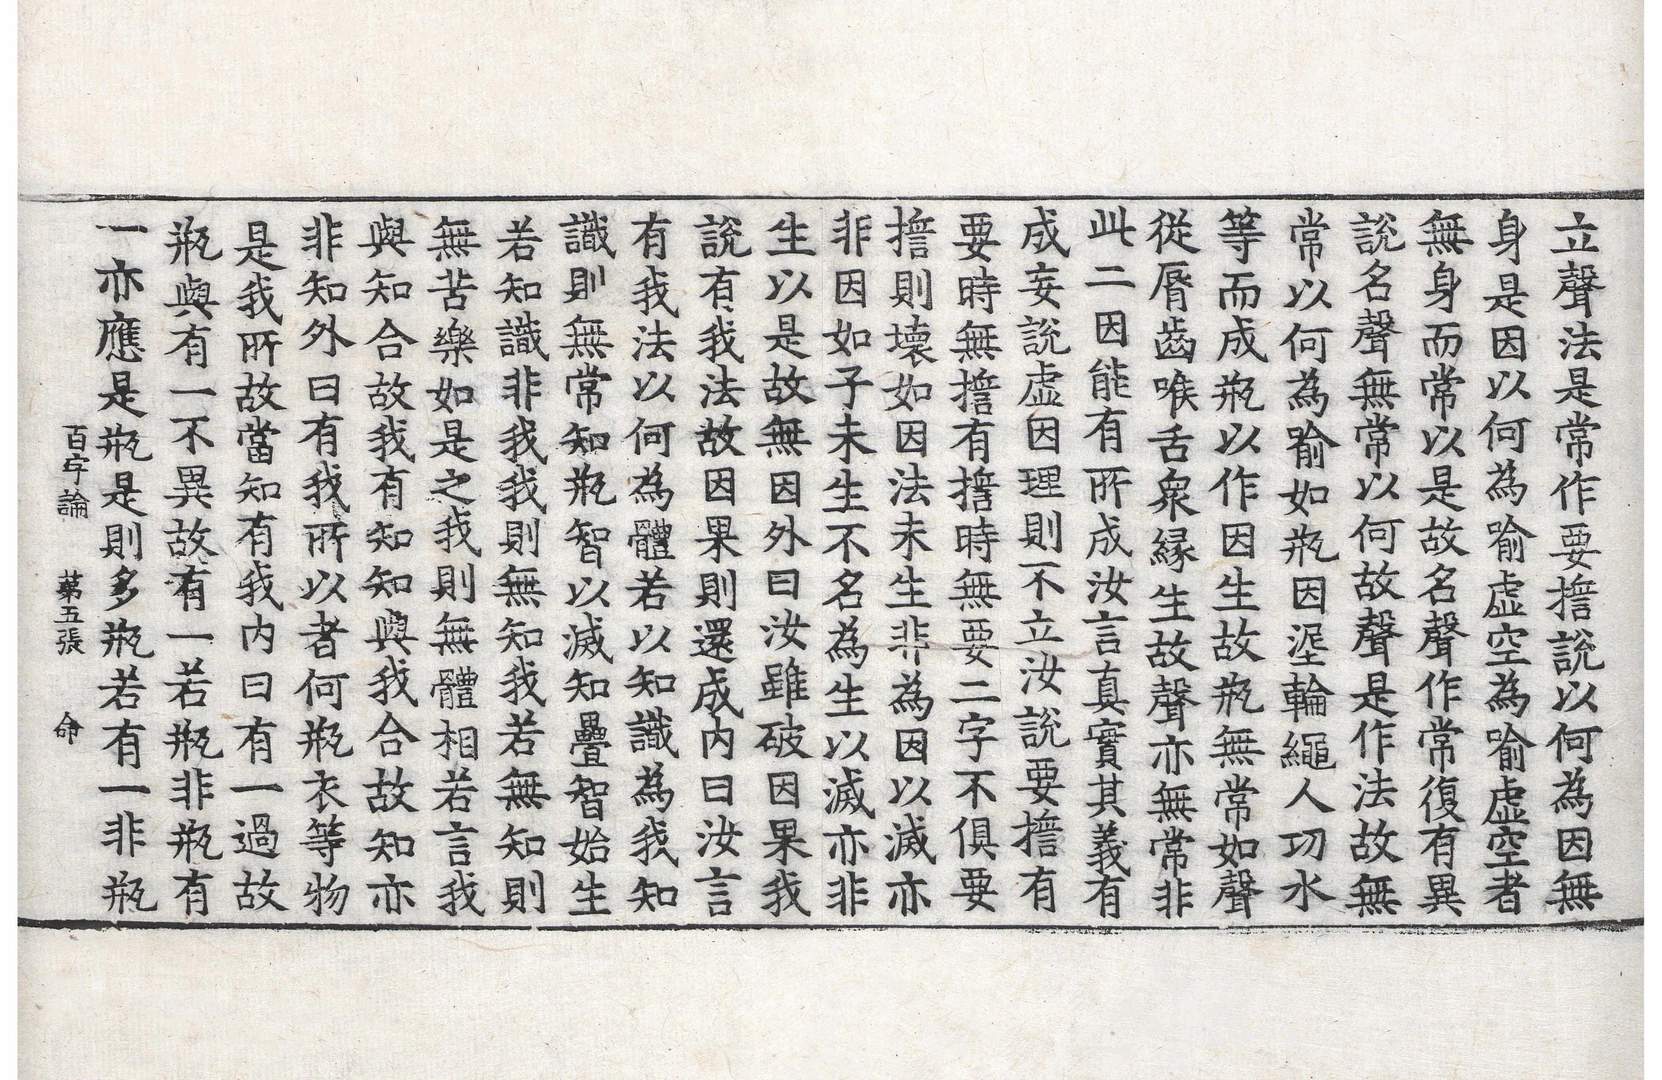 立聲法是常作要擔說以何為因無
身是因以何為喻虛空為喻虛空者
無身而常以是故名聲作常復有異
說名聲無常以何故聲是作法故無
常以何為喻如瓶因埿輪繩人功水
等而成瓶以作因生故瓶無常如聲
從脣齒喉舌衆緣生故聲亦無常非
此二因能有所成汝言真實其義有
成妄說虛因理則不立汝說要擔有
要時無擔有擔時無要二字不俱要
擔則壞如因法未生非為因以滅亦
非因如子未生不名為生以滅亦非
生以是故無因外曰汝雖破因果我
說有我法故因果則還成內曰汝言
有我法以何為體若以知識為我知
識則無常知瓶智以滅知疊智始生
若知識非我我則無知我若無知則
無苦樂如是之我則無體相若言我
與知合故我有知知與我合故知亦
非知外曰有我所以者何瓶衣等物
是我所故當知有我內曰有一過故
瓶與有一不異故有一若瓶非瓶有
一亦應是瓶是則多瓶若有一非瓶
百字論 第五張 命